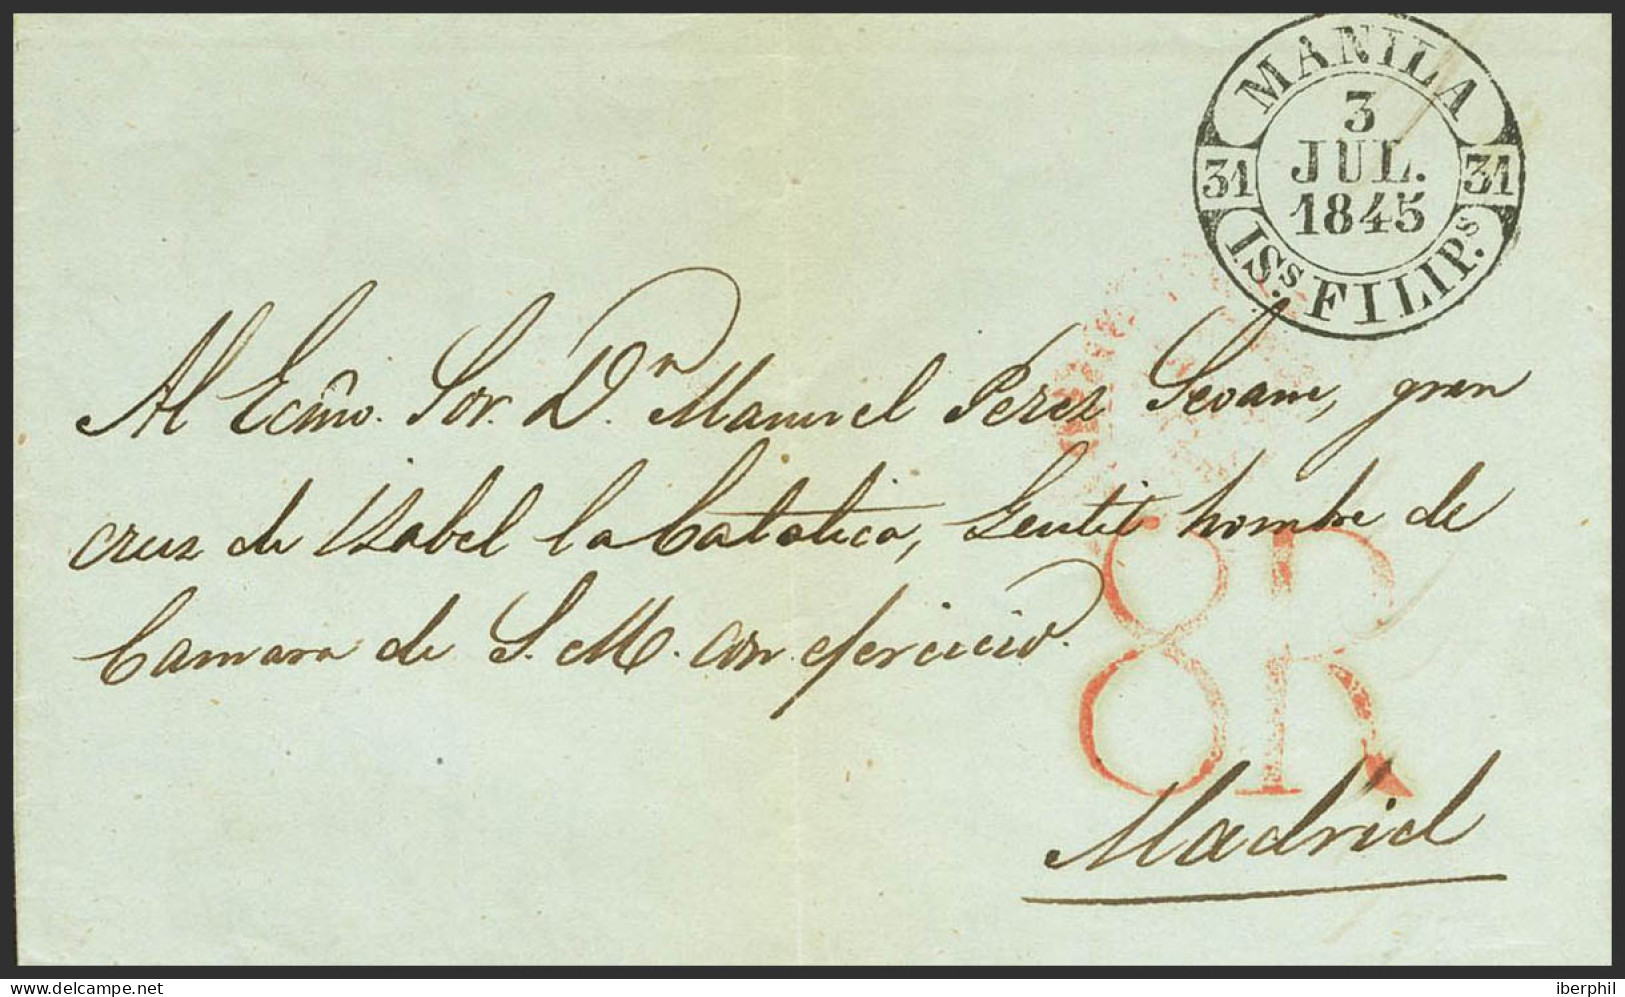 MANILA
3
JUL.
1845
31 31
ISs. FILIPs.
Al Ecmo. Sor. Dn. Manuel Perez Seoane, gran
cruz de Izabel la Catolica, Gentil hombre de
Camara de S. M. con ejercicio.
8R
8R
Madrid
iberphil